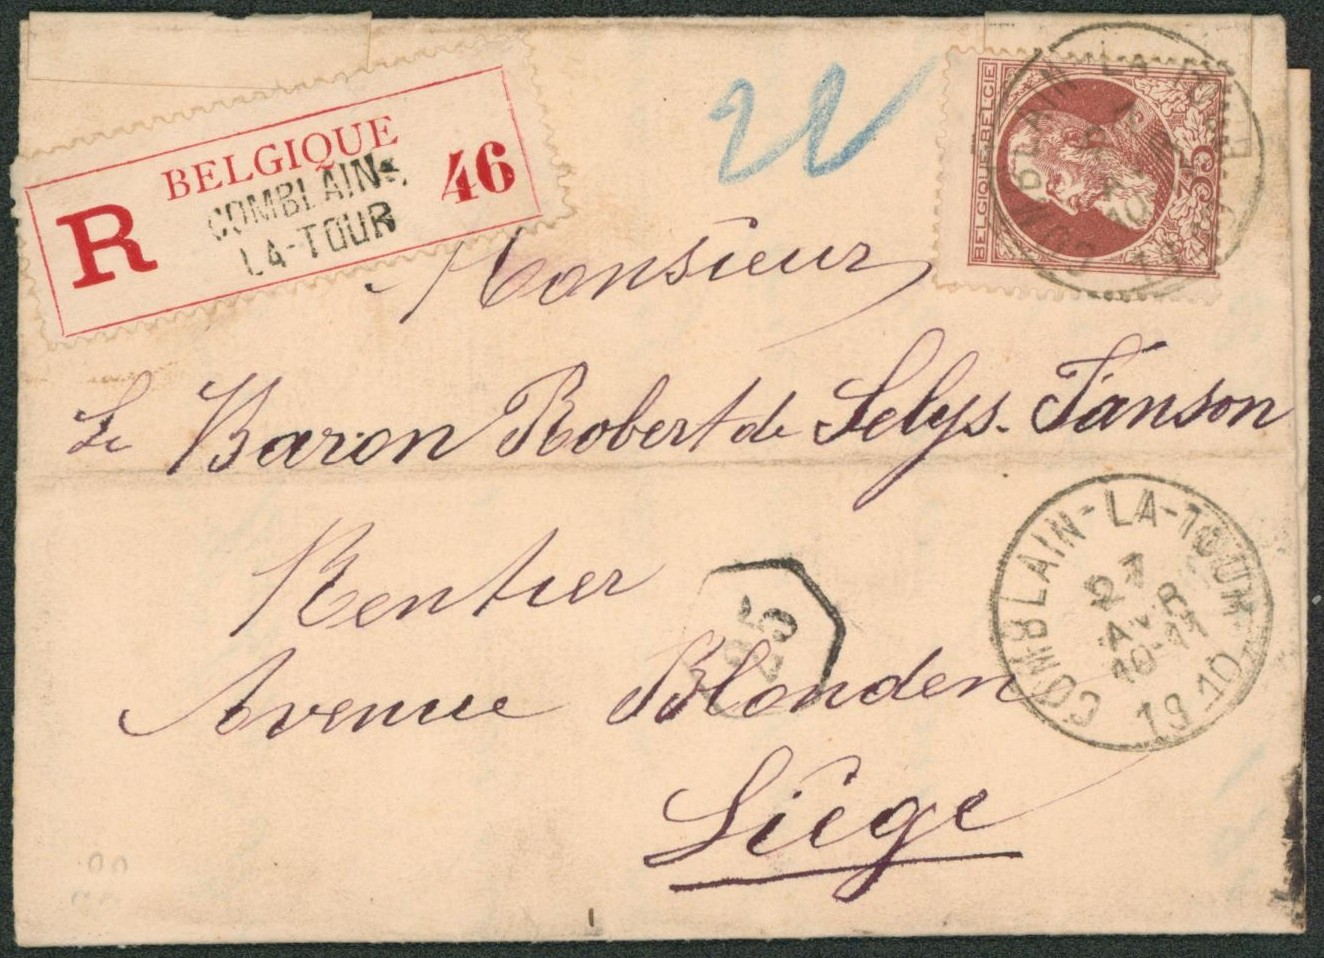 BELGIQUE
R
COMBLAIN-
LA-TOUR
46
22
BELGIQUE·BELGIE
35
COMBLAIN-LA-TOUR
19 10
Monsieur
Le Baron Robert de Selys-Fanson
Rentier
Avenue Blonden
Liége
25
COMBLAIN-LA-TOUR
27
AVR
10-11
19 10